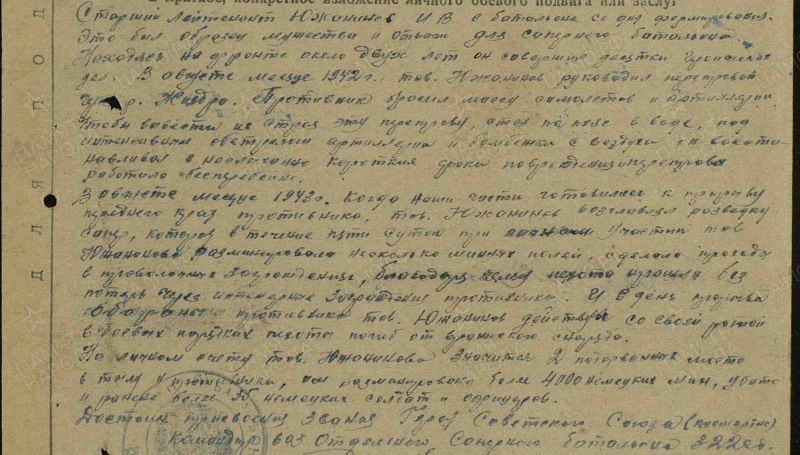 I. Краткое, конкретное изложение личного боевого подвига или заслуг
Старший Лейтенант Южанинов И В в батальоне со дня формирования.
Это был образец мужества и отваги для саперного батальона.
Находясь на фронте около двух лет он совершил десятки героических
дел. В августе месяце 1942 г. тов. Южанинов руководил переправой
через р. Жиздра. Противник бросил массу самолетов и артиллерии
чтобы вывести из строя эту переправу, стоя по пояс в воде, под
интенсивным обстрелом артиллерии и бомбежки с воздуха он восста-
навливал в несколько короткие сроки повреждения переправа
работала бесперебойно.
В августе месяце 1943 г. Когда наши части готовились к прорыву
переднего края противника, тов. Южанинов возглавлял разведку
сапер, которая в течение пяти суток при участии тов
Южанинова разминировала несколько минных полей, сделала проходы
в проволочных заграждениях, благодаря чему пехота прошла без
потерь через инженерные заграждения противника. И в день прорыва
обороны противника тов. Южанинов действуя со своей ротой
в боевых порядках пехоты погиб от вражеского снаряда.
На личном счету тов. Южанинова значится 2 подорванных моста
в тылу у противника, им разминировано более 4000 немецких мин, убито
и ранено более немецких солдат и офицеров.
Достоин присвоения звания Герой Советского Союза (посмертно)
Командир Отдельного Саперного батальона 322 сд.
ДЛЯ ПОД